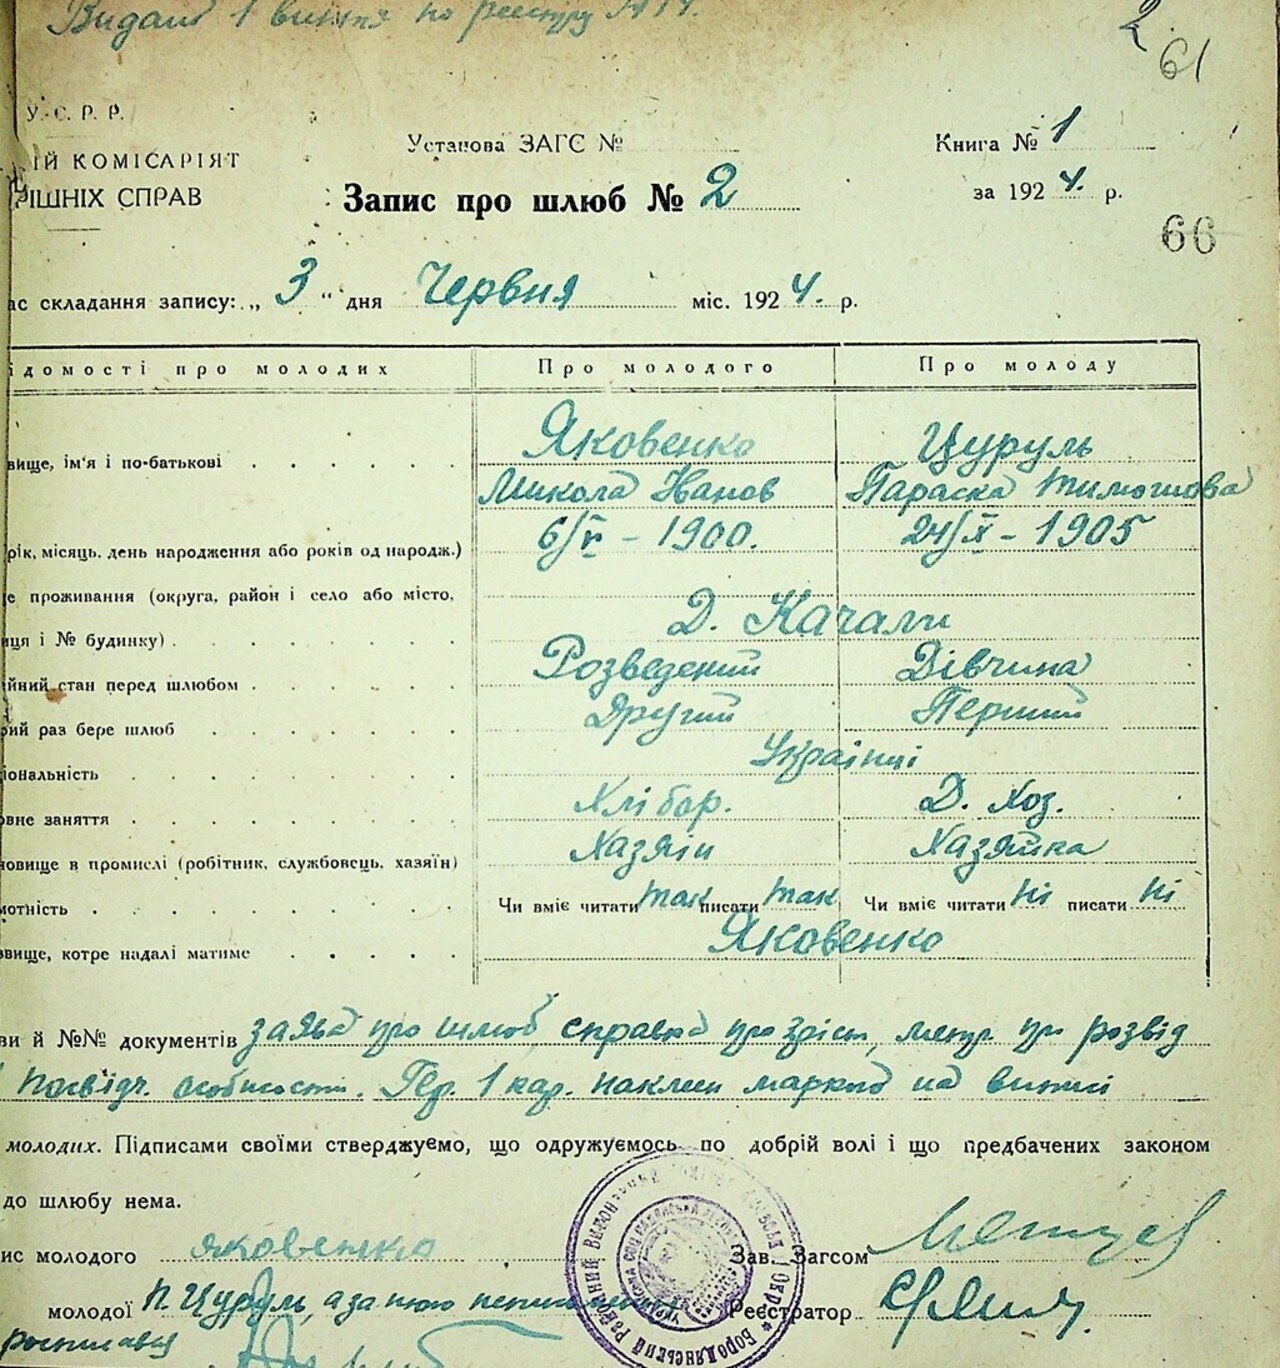 Видано 1 випис по реєстру №
2
61
У. С. Р. Р.
ІЙ КОМІСАРІЯТ
РІШНІХ СПРАВ
Установа ЗАГС №
Книга № 1
Запис про шлюб № 2
за 1924. р.
66
ас складання запису: „ 3 “ дня Червня міс. 1924. р.
ідомості про молодих Про молодого Про молоду
Яковенко Цуруль
вище, ім'я і по-батькові
Микола Иванов Параска Тимошова
6/V - 1900. 24/X - 1905
рік, місяць, день народження або років од народж.)
е проживання (округа, район і село або місто,
Д. Качали
иця і № будинку)
Розведений Дівчина
йний стан перед шлюбом
Другий Перший
рий раз бере шлюб
Українці
іональність
Хлібор. Д. Хоз.
овне заняття
Хазяін Хазяйка
новище в промислі (робітник, службовець, хазяїн)
мотність Чи вміє читати так писати так Чи вміє читати ні писати ні
Яковенко
звище, котре надалі матиме
ви й №№ документів заява про шлюб, справка про зріст, про розвід
Посвідч. особистости. Гер. 1 кар. наклеєн маркой на виписі
молодих. Підписами своїми стверджуємо, що одружуємось по добрій волі і що предбачених законом
до шлюбу нема.
ис молодого яковенко Зав. Загсом
молодої П. Цуруль, а за нею неписьменну Реєстратор
росписався
Бородянський Районний Виконавчий